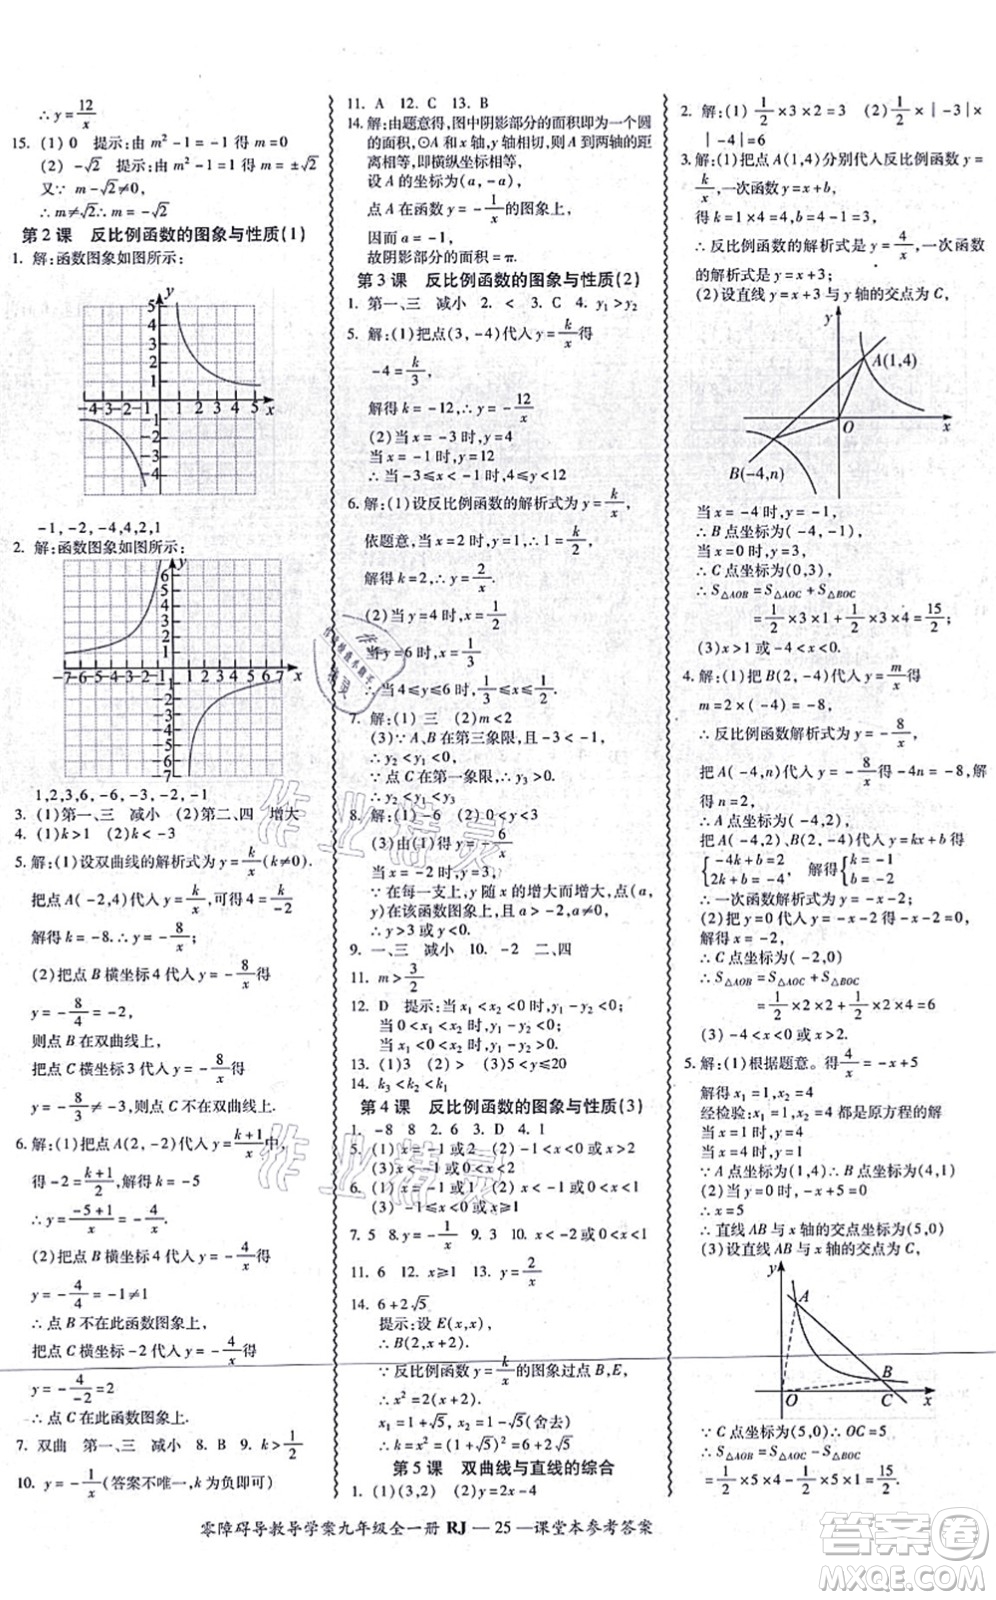 ∴ y=12/x
15. (1) 0　提示:由 m²-1=-1 得 m=0
(2) -√2　提示:由 m²-1=1 得 m=±√2
又∵ m-√2≠0,
∴ m≠√2∴ m=-√2
第 2 课　反比例函数的图象与性质(1)
1. 解:函数图象如图所示:
-1,-2,-4,4,2,1
2. 解:函数图象如图所示:
1,2,3,6,-6,-3,-2,-1
3. (1)第一、三　减小　(2)第二、四　增大
4. (1)k>1　(2)k<-3
5. 解:(1)设双曲线的解析式为 y=k/x(k≠0).
把点 A(-2,4)代入 y=k/x,可得 4=k/-2
解得 k=-8.∴ y=-8/x;
(2)把点 B 横坐标 4 代入 y=-8/x得
y=-8/4=-2,
则点 B 在双曲线上,
把点 C 横坐标 3 代入 y=-8/x得
y=-8/3≠-3,则点 C 不在双曲线上.
6. 解:(1)把点 A(2,-2)代入 y=k+1/x中,
得-2=k+1/2,
∴ y=-5+1/x=-4/x.
(2)把点 B 横坐标 4 代入 y=-4/x得
y=-4/4=-1≠1
∴ 点 B 不在此函数图象上,
把点 C 横坐标-2 代入 y=-4/x得
y=-4/-2=2
∴ 点 C 在此函数图象上.
7. 双曲　第一、三　减小　8. B　9. k>1/2
10. y=-1/x(答案不唯一,k 为负即可)
11. A　12. C　13. B
14. 解:由题意得,图中阴影部分的面积即为一个圆
的面积,⊙A 和 x 轴,y 轴相切,则 A 到两轴的距
离相等,即横纵坐标相等,
设 A 的坐标为(a,-a),
点 A 在函数 y=-1/x的图象上,
因而 a=1,
故阴影部分的面积=π.
第 3 课　反比例函数的图象与性质(2)
1. 第一、三　减小　2. <　3. C　4. y₁>y₂
5. 解:(1)把点(3,-4)代入 y=k/x得
-4=k/3,
解得 k=-12,∴ y=-12/x
(2)当 x=-3 时,y=4
当 x=-1 时,y=12
∴ 当-3≤x≤-1 时,4≤y≤12
6. 解:(1)设反比例函数的解析式为 y=k/x,
依题意,当 x=2 时,y=1,∴ 1=k/2
解得 k=2,∴ y=2/x.
(2)当 y=4 时,x=1/2
当 y=6 时,x=1/3
∴ 当 4≤y≤6 时,1/3≤x≤1/2
7. 解:(1) 三　(2)m<2
(3)∵ A、B 在第三象限,且-3<-1
∴ y₂<y₁
∵ 点 C 在第一象限,∴ y₃>0
∴ y₂<y₁<y₃
8. 解:(1)-6　(2)四
(3)由(1)得 y=-6/x
当 x=-2 时,y=3
∵ 在每一支上,y 随 x 的增大而增大,点 A(x,
y)在该函数图象上,且 a>-2,a≠0,
∴ y>3 或 y<0
9. 一、三　减小　10. -2　二、四
11. m>3/2
12. D　提示:当 x₁<x₂<0 时,y₁-y₂>0,
当 0<x₁<x₂ 时,y₁-y₂>0,
当 x₁<0<x₂ 时,y₁-y₂<0.
13. (1)3　(2)<　>　(3)5<y<20
14. k₃<k₂<k₁
第 4 课　反比例函数的图象与性质(3)
1. -8　8　2. 6　3. D　4. 1
5. (1) x=-1 或 2　(2)-1<x<0 或 x>2
(3)x≤-1 或 0<x≤2
6. (1) x=-1 或 2　(2) x<-1 或 0<x<2
(3) -1≤x<0 或 x≥2
7. 5　8. y=-1/x　9. 3　10. 0<x<1 或 x>2
11. 6　12. x≥1　13. y=2/x
14. 6+2√5
提示:设 E(x,x),
∴ B(2,x+2),
∵ 反比例函数 y=k/x的图象过点 B,E,
∴ x²=2(x+2),
x₁=1+√5,x₂=1-√5(舍去)
∴ k=x²=(1+√5)²=6+2√5
第 5 课　双曲线与直线的综合
1. (1)(3,2)　(2)y=2x-4
2. 解:(1) 1/2×3×2=3　(2) 1/2×|-3|×
|-4|=6
3. 解:(1)把点 A(1,4)分别代入反比例函数 y=
k/x,一次函数 y=x+b,
得 k=1×4,1+b=4,
解得 k=4,b=3
∴ 反比例函数的解析式为 y=4/x,一次函数
的解析式为 y=x+3;
(2)设直线 y=x+3 与 y 轴的交点为 C,
当 x=-4 时,y=-1,
∴ B 点坐标为(-4,-1),
当 x=0 时,y=3,
∴ C 点坐标为(0,3),
∴ S△AOB=S△AOC+S△BOC
=1/2×3×1+1/2×3×4=15/2
(3)x>1 或-4<x<0.
4. 解:(1)把 B(2,-4)代入 y=m/x得
m=2×(-4)=-8,
∴ 反比例函数解析式为 y=-8/x,
把 A(-4,n)代入 y=-8/x得-4n=-8,解
得 n=2,
∴ A(-4,2),
把 A(-4,2)、B(2,-4)代入 y=kx+b 得
{-4k+b=2 2k+b=-4　解得{k=-1 b=-2
∴ 一次函数解析式为 y=-x-2;
(2)当 y=0 时,-x-2=0,
解得 x=-2,
∴ C 点坐标为(-2,0)
∴ S△AOB=S△AOC+S△BOC
=1/2×2×2+1/2×2×4=6
(3)-4<x<0 或 x>2.
5. 解:(1)根据题意。得4/x=-x+5
解得 x₁=1,x₂=4,
经检验:x₁=1,x₂=4 都是原方程的解
当 x=1 时,y=4
当 x=4 时,y=1
∵ A 点坐标为(1,4)∴ B 点坐标为(4,1)
(2)当 y=0 时,-x+5=0
∴ x=5
∴ 直线 AB 与 x 轴的交点坐标为(5,0)
(3)设直线 AB 与 x 轴的交点为 C,
∵ C 点坐标为(5,0)∴ OC=5
∴ S△AOB=S△AOC-S△BOC
=1/2×5×4-1/2×5×1=15/2
零障碍导教导学案九年级全一册 RJ — 25 —课堂本参考答案
作业精灵
作业精灵
答案圈
MXQE.COM